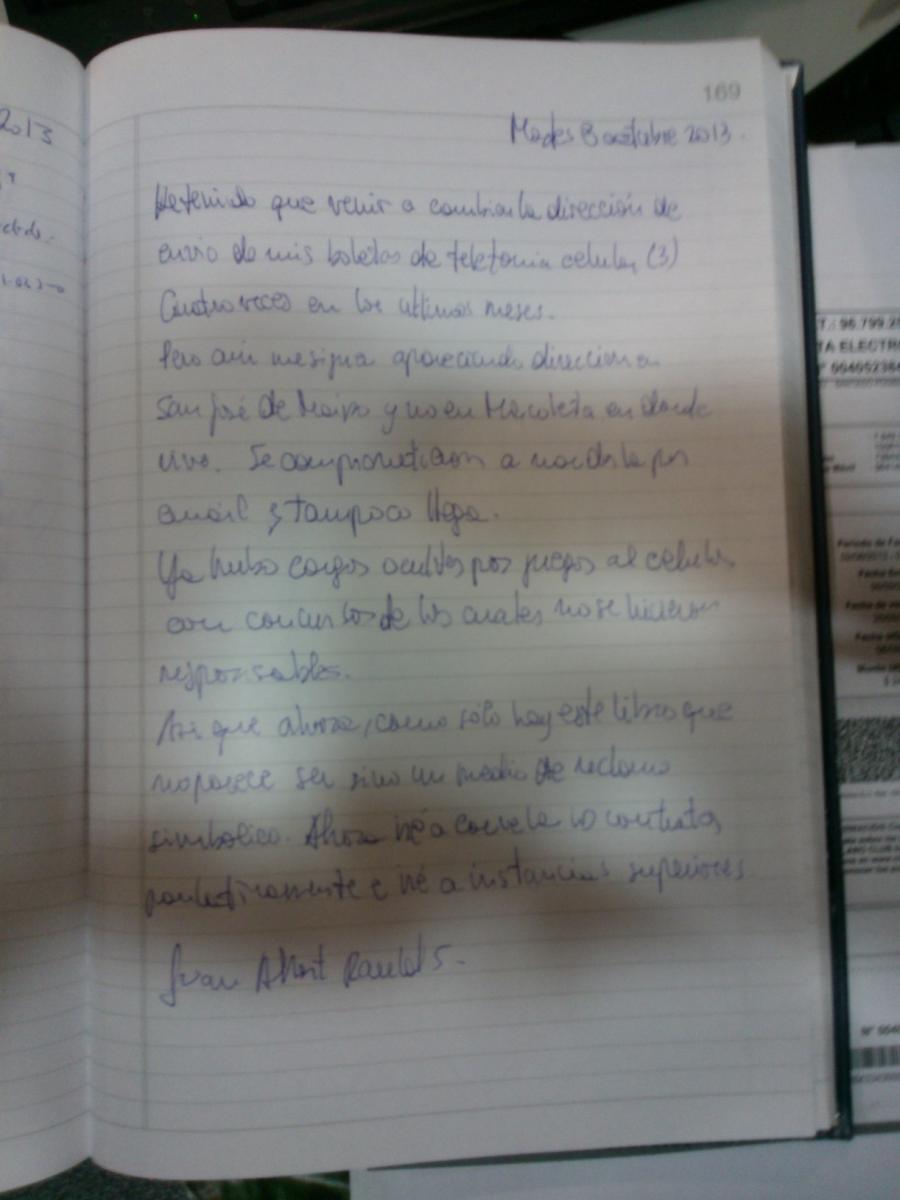 169
2013
Martes 8 octubre 2013.
He tenido que venir a cambiar la dirección de
envio de mis boletas de telefonia celular (3)
Cuatro veces en los ultimos meses.
Pero aún me sigue apareciendo direccion en
San José de Maipo y no en Marcoleta en donde
vivo. Se comprometieron a mandarla por
email y tampoco llega.
Ya hubo cargos ocultos por juegos al celular
con concursos de los cuales no se hicieron
responsables.
Asi que ahora, como sólo hay este libro que
no parece ser sino un medio de reclamo
simbólico. Ahora iré a los contratos
paulatinamente e iré a instancias superiores
Juan S.
T.: 96.799.2
TA ELECTR